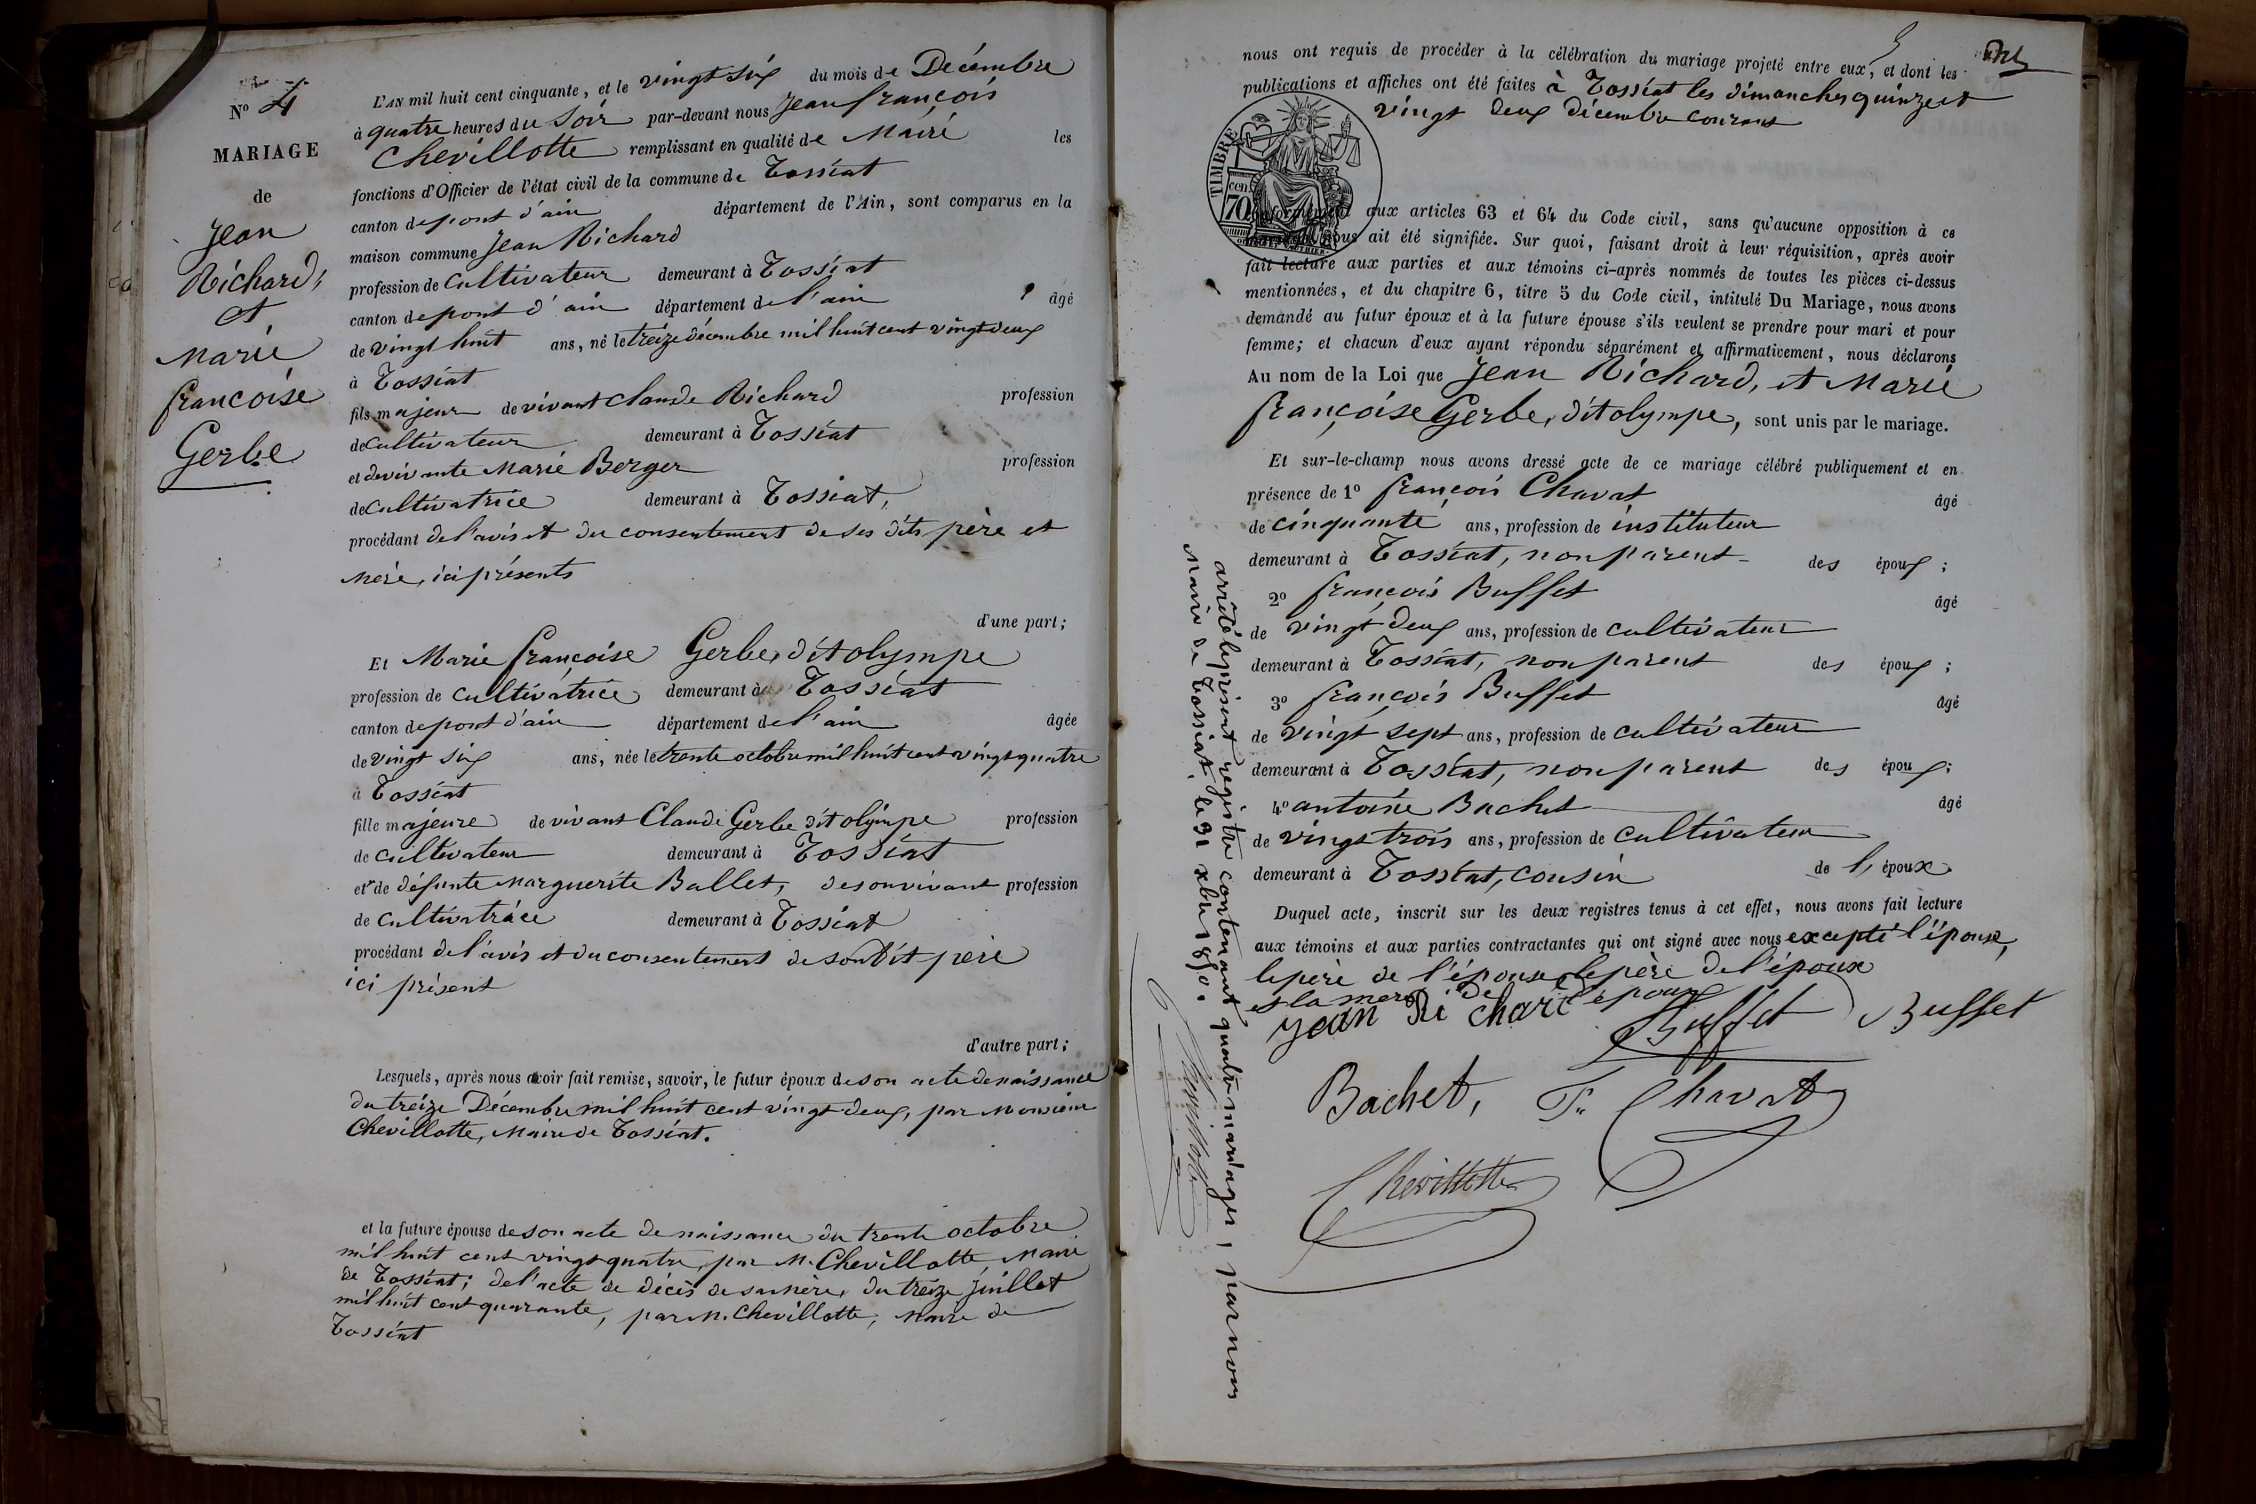 N° 4
MARIAGE
de
Jean
Richard,
et
Marie
françoise
Gerbe
L'AN mil huit cent cinquante, et le vingt six du mois de Décembre
à quatre heures du Soir par-devant nous Jean françois
Chevillotte remplissant en qualité de Maire les
fonctions d'Officier de l'état civil de la commune de Tossiat
canton de pont d'ain département de l'Ain, sont comparus en la
maison commune Jean Richard
profession de Cultivateur demeurant à Tossiat
canton de pont d'ain département de l'ain âgé
de vingt huit ans, né le treize décembre mil huit cent vingt deux
à Tossiat
fils majeur de vivant Claude Richard profession
de Cultivateur demeurant à Tossiat
et de vivante Marie Berger profession
de Cultivatrice demeurant à Tossiat,
procédant de l'avis et du consentement de ses dits père et
Mère, ici présents
d'une part;
Et Marie françoise Gerbe, dit olympe
profession de Cultivatrice demeurant à Tossiat
canton de pont d'ain département de l'ain âgée
de vingt six ans, née le trente octobre mil huit cent vingt quatre
à Tossiat
fille majeure de vivant Claude Gerbe dit olympe profession
de Cultivateur demeurant à Tossiat
et de défunte Marguerite Ballet, de son vivant profession
de Cultivatrice demeurant à Tossiat
procédant de l'avis et du consentement de son Dit père
ici présent
d'autre part;
Lesquels, après nous avoir fait remise, savoir, le futur époux de son acte de naissance
du treize Décembre mil huit cent vingt deux, par Monsieur
Chevillotte, Maire de Tossiat.
et la future épouse de son acte de naissance du trente octobre
mil huit cent vingt quatre, par M. Chevillotte, Maire
de Tossiat; de l'acte de décès de sa mère, du treize juillet
mil huit cent quarante, par M. Chevillotte, Maire de
Tossiat
nous ont requis de procéder à la célébration du mariage projeté entre eux, et dont les
publications et affiches ont été faites à Tossiat les dimanches quinze et
vingt deux décembre courant
TIMBRE
70 cen
conformément aux articles 63 et 64 du Code civil, sans qu'aucune opposition à ce
mariage nous ait été signifiée. Sur quoi, faisant droit à leur réquisition, après avoir
fait lecture aux parties et aux témoins ci-après nommés de toutes les pièces ci-dessus
mentionnées, et du chapitre 6, titre 5 du Code civil, intitulé Du Mariage, nous avons
demandé au futur époux et à la future épouse s'ils veulent se prendre pour mari et pour
femme; et chacun d'eux ayant répondu séparément et affirmativement, nous déclarons
Au nom de la Loi que Jean Richard, et Marie
françoise Gerbe, dit olympe, sont unis par le mariage.
Et sur-le-champ nous avons dressé acte de ce mariage célébré publiquement et en
présence de 1° françois Chavat âgé
de cinquante ans, profession de instituteur
demeurant à Tossiat, non parent des époux;
2° françois Buffet âgé
de vingt deux ans, profession de cultivateur
demeurant à Tossiat, non parent des époux;
3° françois Buffet âgé
de vingt sept ans, profession de cultivateur
demeurant à Tossiat, non parent des époux;
4° antoine Bachet âgé
de vingt trois ans, profession de cultivateur
demeurant à Tossiat, cousin de l'époux
Duquel acte, inscrit sur les deux registres tenus à cet effet, nous avons fait lecture
aux témoins et aux parties contractantes qui ont signé avec nous excepté l'épouse,
le père de l'épouse, le père de l'époux
et la mère de l'époux
Jean Richard Buffet Buffet
Bachet, Fs Chavat
Chevillotte
arrêté le présent registre contenant quatre mariages, par nous
Maire de Tossiat, le 31 xbre 1850.
Chevillotte